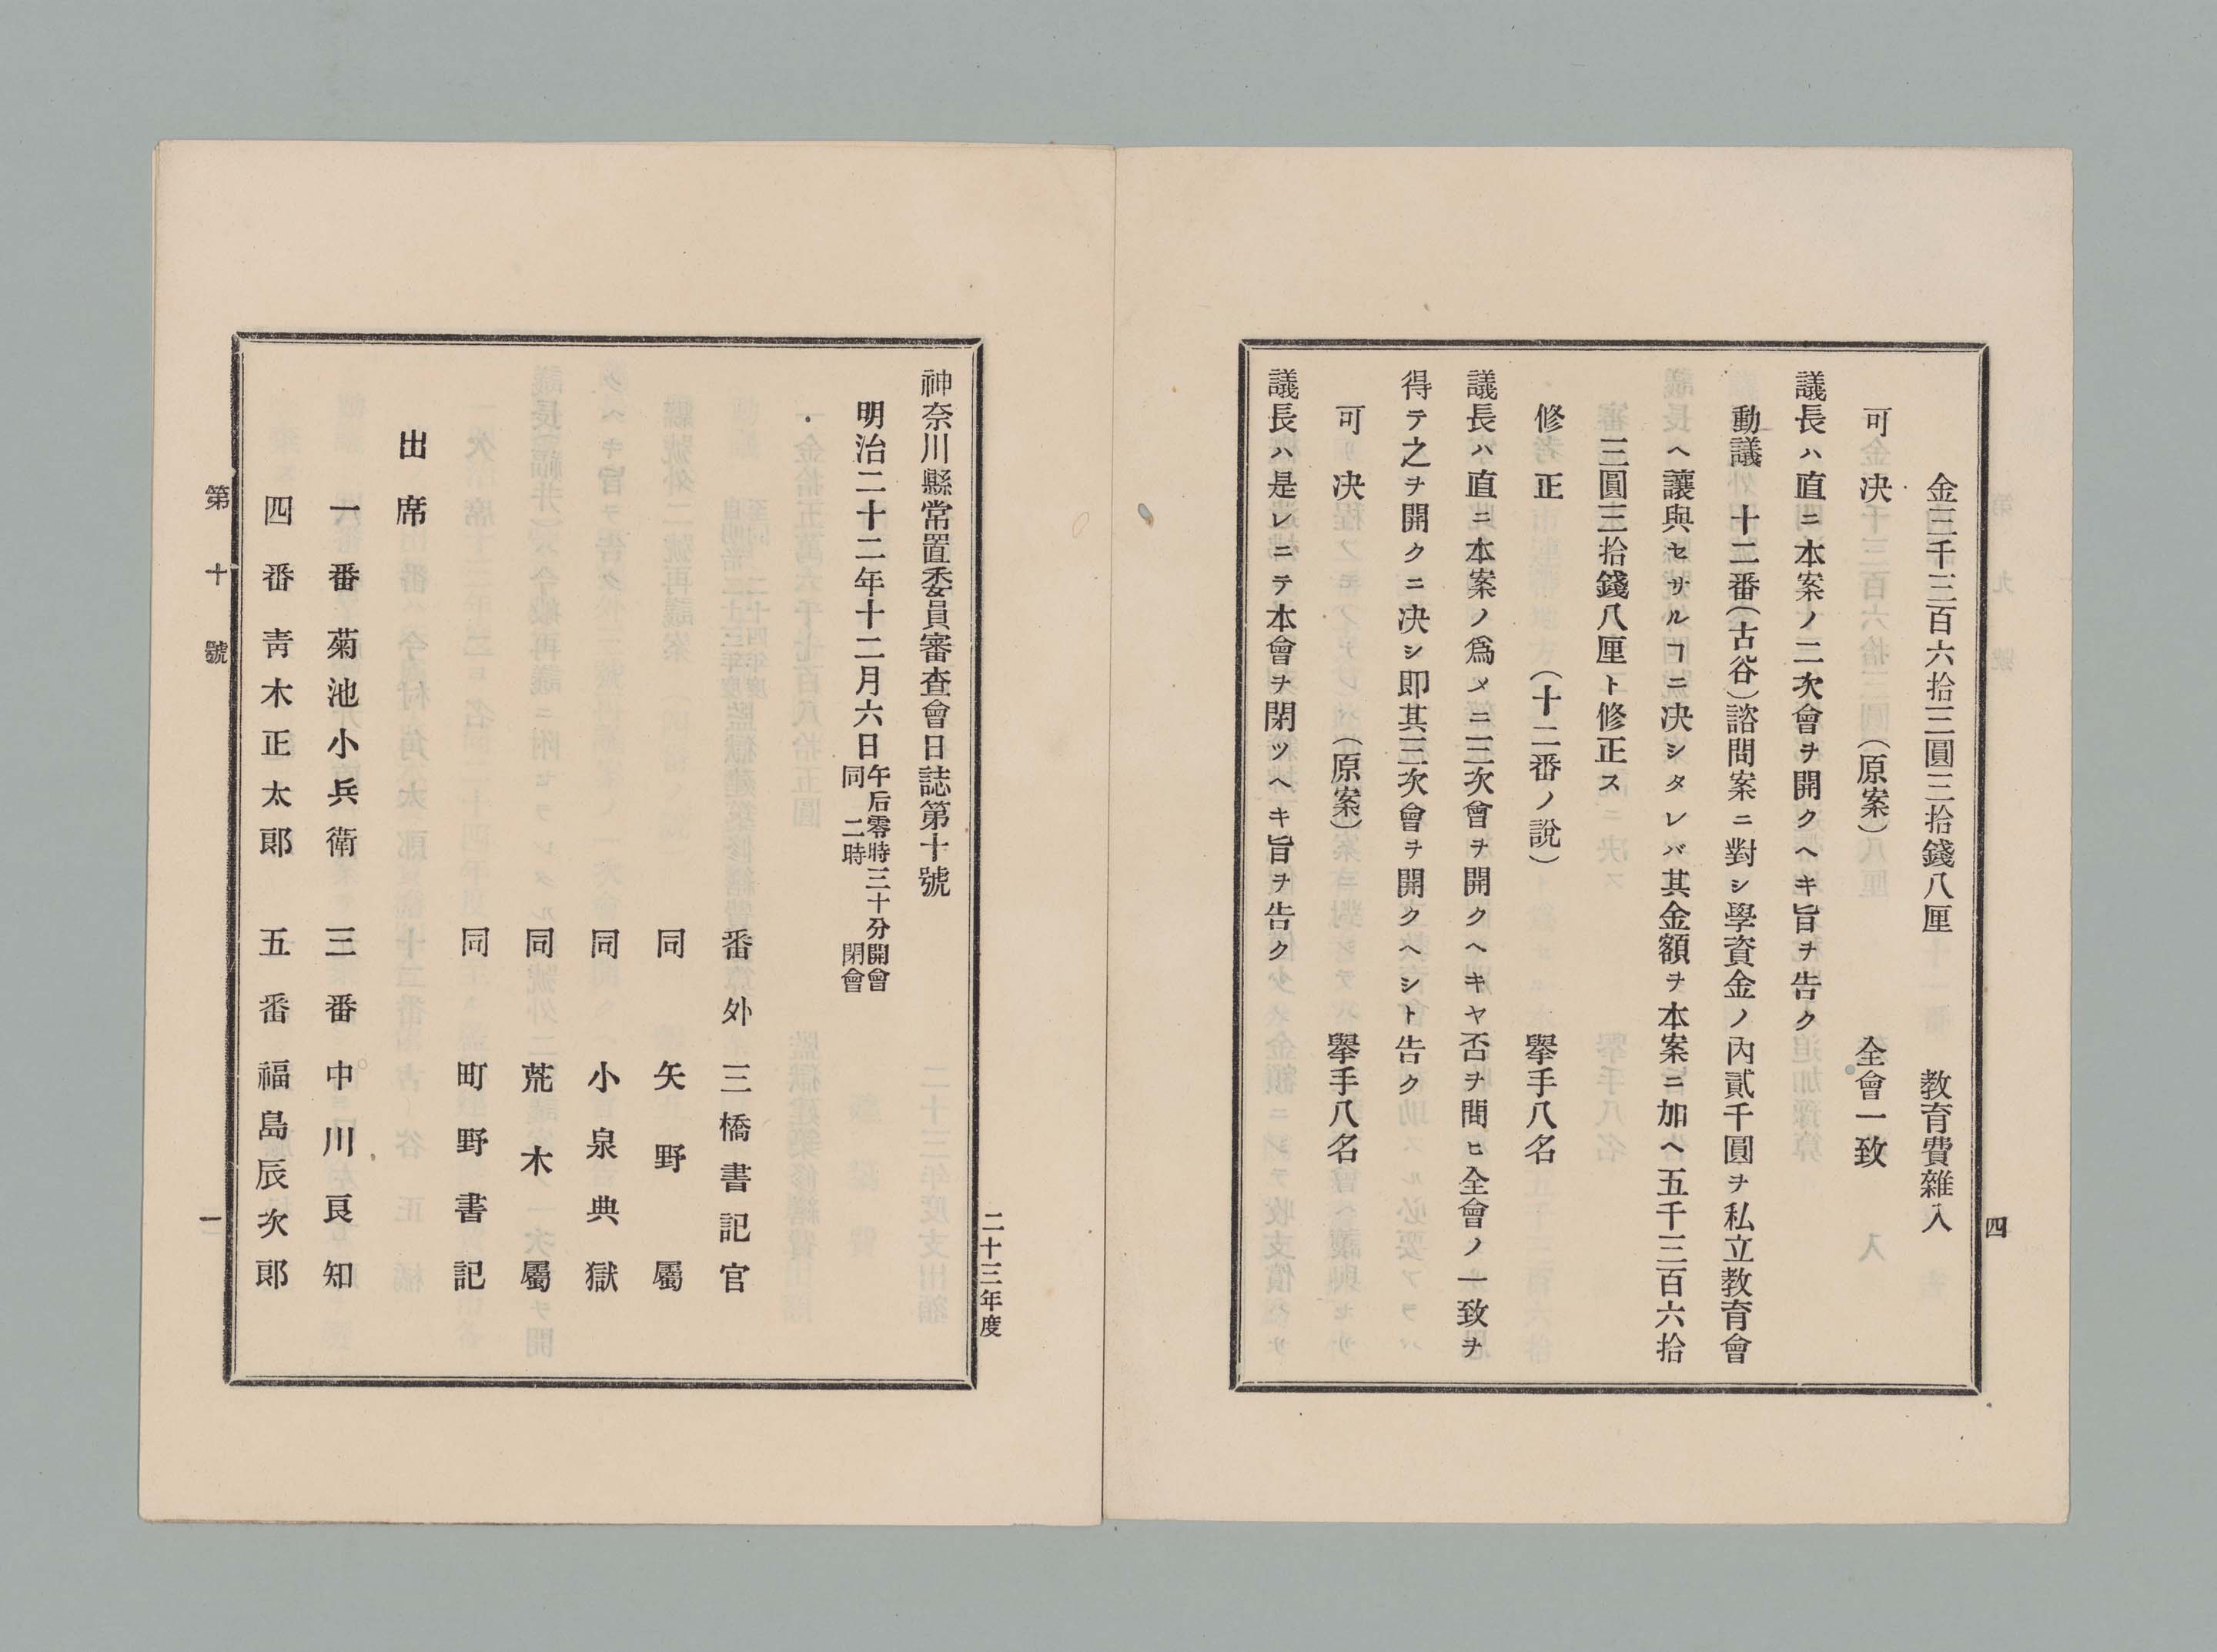 金三千三百六拾三圓三拾錢八厘　教育費雜入
可決　（原案）　全會一致
議長ハ直ニ本案ノ二次會ヲ開クヘキ旨ヲ告ク
動議　十二番（古谷）諮問案ニ對シ學資金ノ內貳千圓ヲ私立教育會
ヘ讓與セサルヿニ决シタレバ其金額ヲ本案ニ加ヘ五千三百六拾
三圓三拾錢八厘ト修正ス
修正　（十二番ノ說）　擧手八名
議長ハ直ニ本案ノ爲メニ三次會ヲ開クヘキヤ否ヲ問ヒ全會ノ一致ヲ
得テ之ヲ開クニ决シ即其三次會ヲ開クヘシト告ク
可決　（原案）　擧手八名
議長ハ是レニテ本會ヲ閉ツヘキ旨ヲ告ク
四
二十三年度
神奈川縣常置委員審査會日誌第十號
明治二十二年十二月六日午后零時三十分開會
同　二時　閉會
番外　三橋書記官
同　矢野屬
同　小泉典獄
同　荒木屬
同　町野書記
出席
一番　菊池小兵衛　三番　中川良知
四番　靑木正太郎　五番　福島辰次郎
第十號
一